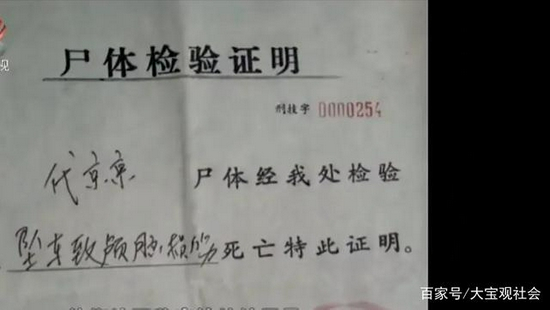 视
尸体检验证明
刑技字 0000254
代京京 尸体经我处检验
坠车致颅脑损伤死亡特此证明。
百家号/大宝观社会